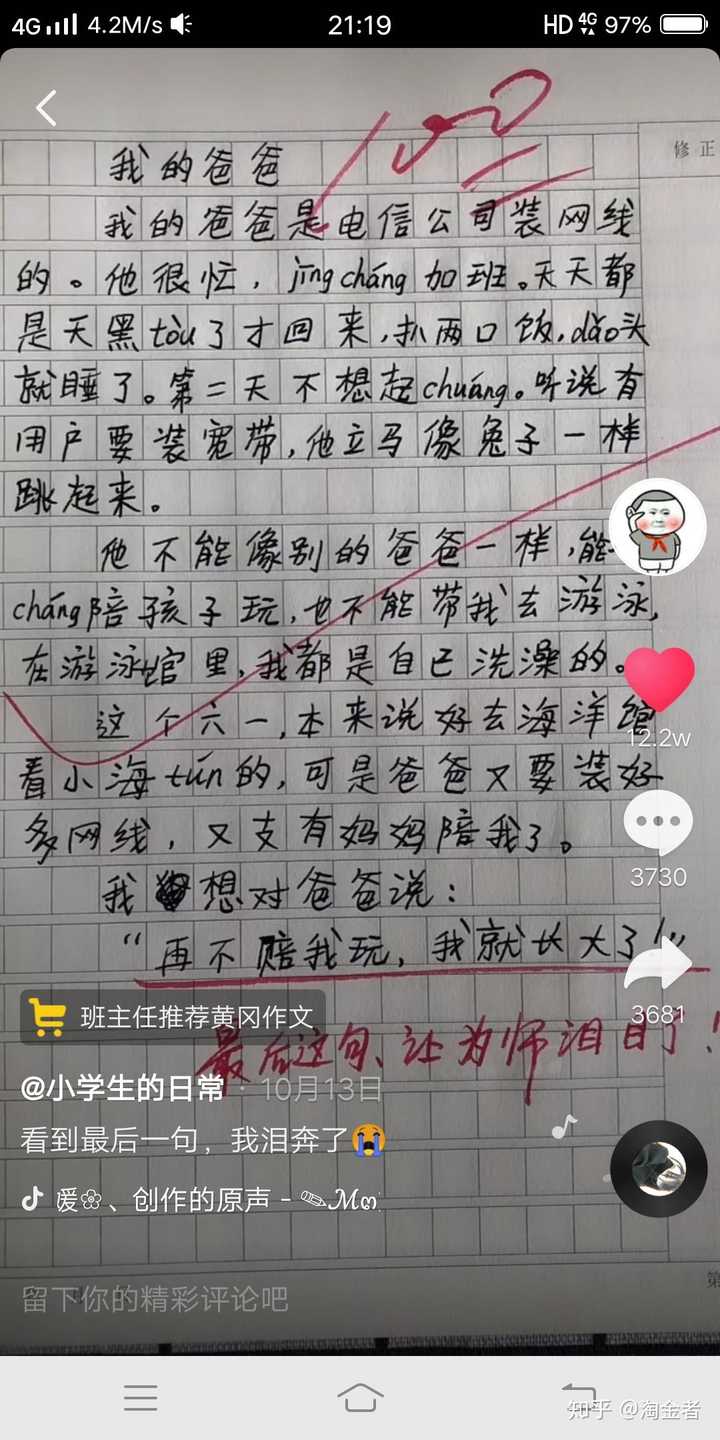 4G 4.2M/s 21:19 HD 4G 97%
修正
100
我的爸爸
我的爸爸是电信公司装网线
的。他很忙，jīng cháng加班。天天都
是天黑tòu了才回来，扒两口饭，dǎo头
就睡了。第二天不想起chuáng。听说有
用户要装宽带，他立马像兔子一样
跳起来。
他不能像别的爸爸一样，能
cháng陪孩子玩，也不能带我去游泳，
在游泳馆里，我都是自己洗澡的。
这个六一，本来说好去海洋馆
看小海tún的，可是爸爸又要装好
多网线，又支有妈妈陪我了。
我想对爸爸说：
“再不赔我玩，我就长大了！”
最后这句、让为师泪目了！
12.2w
3730
3681
班主任推荐黄冈作文
@小学生的日常 · 10月13日
看到最后一句，我泪奔了😭
、创作的原声 -
留下你的精彩评论吧
第
知乎 @淘金者